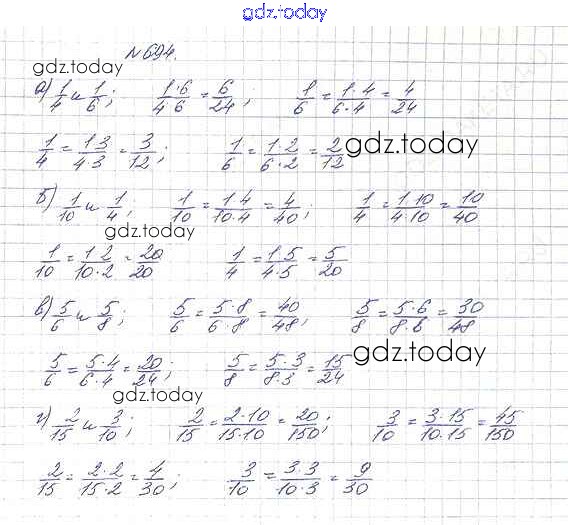 gdz.today
№694.
gdz.today
а) 1/4 и 1/6; 1·6/4·6 = 6/24; 1/6 = 1·4/6·4 = 4/24
1/4 = 1·3/4·3 = 3/12; 1/6 = 1·2/6·2 = 2/12 gdz.today
б) 1/10 и 1/4; 1/10 = 1·4/10·4 = 4/40; 1/4 = 1·10/4·10 = 10/40
gdz.today
1/10 = 1·2/10·2 = 20/20 1/4 = 1·5/4·5 = 5/20
в) 5/6 и 5/8; 5/6 = 5·8/6·8 = 40/48; 5/8 = 5·6/8·6 = 30/48
5/6 = 5·4/6·4 = 20/24; 5/8 = 5·3/8·3 = 15/24 gdz.today
gdz.today
г) 2/15 и 3/10; 2/15 = 2·10/15·10 = 20/150; 3/10 = 3·15/10·15 = 45/150
2/15 = 2·2/15·2 = 4/30; 3/10 = 3·3/10·3 = 9/30